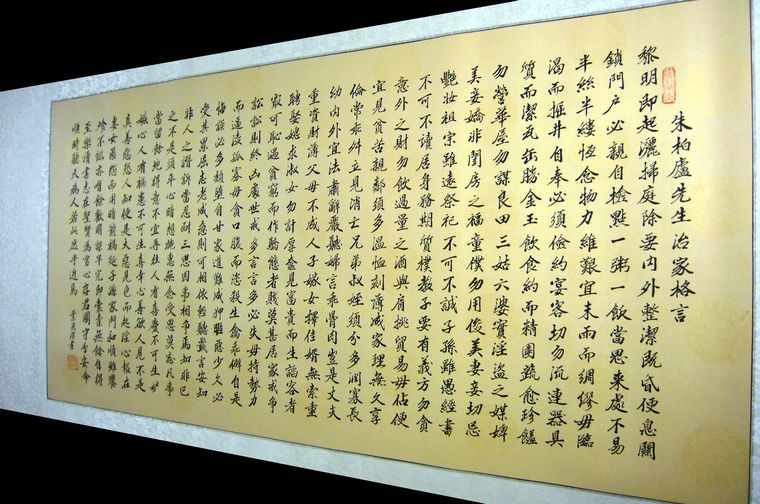 朱柏廬先生治家格言
黎明即起灑掃庭除要內外整潔既昏便息關
鎖門户必親自檢點一粥一飯當思來處不易
半絲半縷恆念物力維艱宜未雨而綢繆毋臨
渴而掘井自奉必須儉約宴客切勿流連器具
質而潔瓦缶勝金玉飲食約而精園蔬愈珍饈
勿營華屋勿謀良田三姑六婆實淫盜之媒婢
美妾嬌非閨房之福童僕勿用俊美妻妾切忌
艷妝祖宗雖遠祭祀不可不誠子孫雖愚經書
不可不讀居身務期質樸教子要有義方勿貪
意外之財勿飲過量之酒與肩挑貿易毋佔便
宜見貧苦親鄰須多溫恤刻薄成家理無久享
倫常乖舛立見消亡兄弟叔姪須分多潤寡長
幼內外宜法肅辭嚴聽婦言乖骨肉豈是丈夫
重資財薄父母不成人子嫁女擇佳婿無索重
聘娶媳求淑女勿計厚奩見富貴而生諂容者
最可恥遇貧窮而作驕態者賤莫甚居家戒爭
訟訟則終凶處世戒多言言多必失毋恃勢力
而凌逼孤寡毋貪口腹而恣殺生禽乖僻自是
悔誤必多頹墮自甘家道難成狎暱惡少久必
受其累屈志老成急則可相依輕聽發言安知
非人之譖訴當忍耐三思因事相爭焉知非己
之不是須平心暗想施惠無念受恩莫忘凡事
當留餘地得意不宜再往人有喜慶不可生妒
嫉心人有禍患不可生喜幸心善欲人見不是
真善惡恐人知便是大惡見色而起淫心報在
妻女匿怨而用暗箭禍延子孫家門和順雖饔
飧不繼亦有餘歡國課早完即囊橐無餘自得
至樂讀書志在聖賢為官心存君國守分安命
順時聽天為人若此庶乎近焉